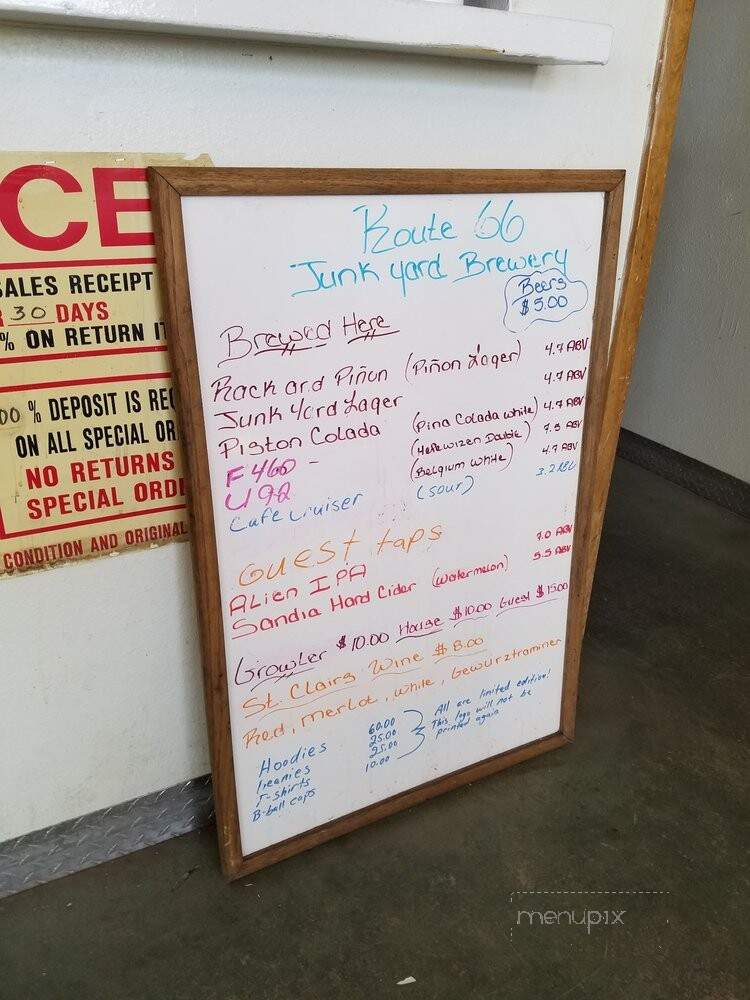 CE
SALES RECEIPT
R 30 DAYS
% ON RETURN IT
00 % DEPOSIT IS RE
ON ALL SPECIAL OR
NO RETURNS
SPECIAL ORD
CONDITION AND ORIGINAL
Route 66
Junk yard Brewery
Beers
$5.00
Brewed Here
Rack ard Piñon (Piñon Lager) 4.7 ABV
Junk Yard Lager 4.7 ABV
Piston Colada (Pina Colada white) 4.7 ABV
F460 - (Hefewizen Double) 7.5 ABV
U92 (Belgium White) 4.7 ABV
Cafe Cruiser (Sour) 3.2 ABV
Guest taps
Alien IPA 7.0 ABV
Sandia Hard Cider (Watermelon) 5.5 ABV
Growler $10.00 House $10.00 Guest $15.00
St. Clairs Wine $8.00
Red, merlot, white, Gewurztraminer
Hoodies 60.00
Beanies 25.00
T-shirts 25.00
B-ball caps 10.00
All are limited edition!
This logo will not be
printed again
menupix